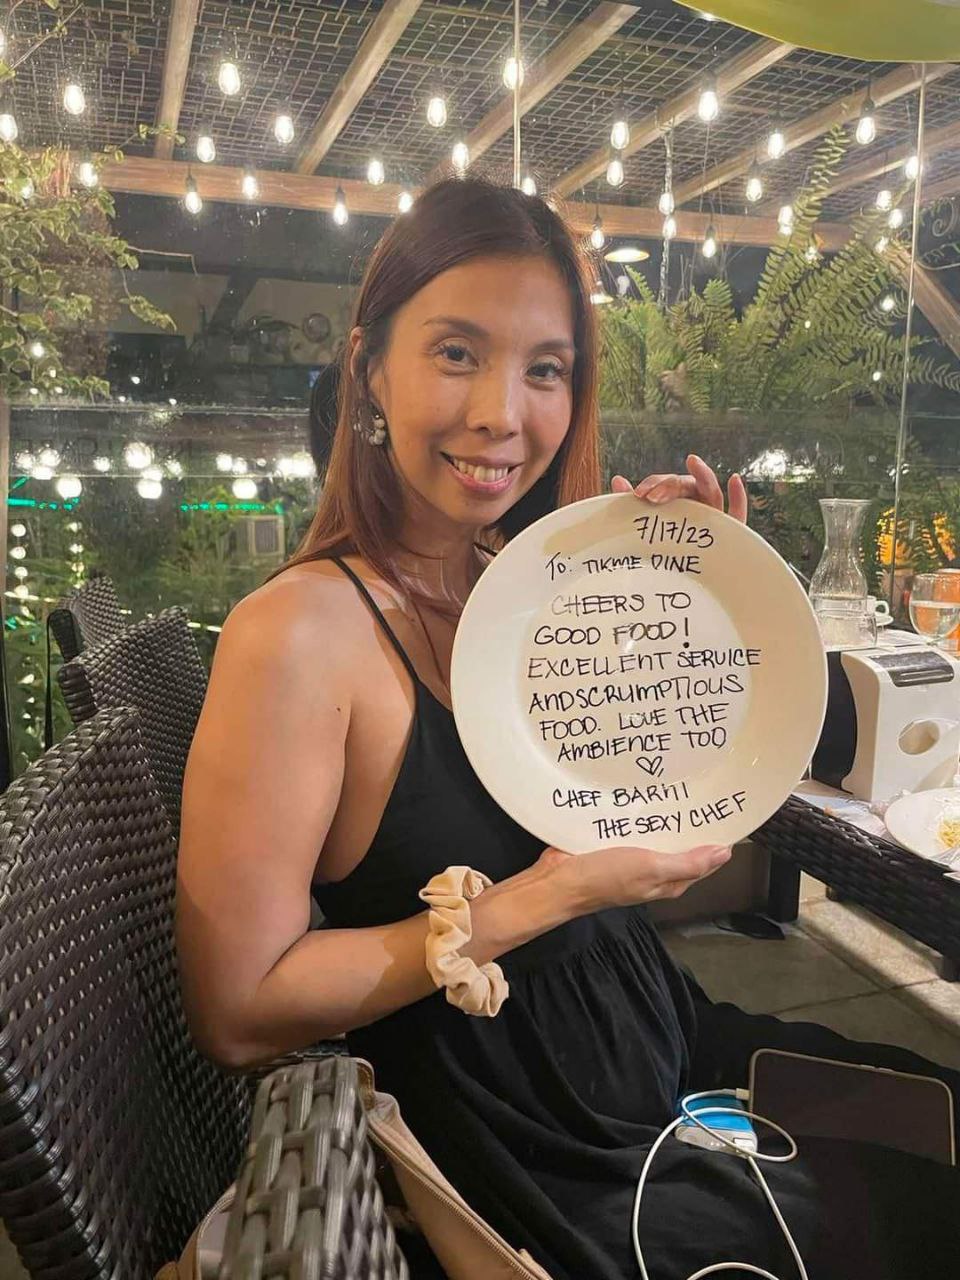 7/17/23
To: TIKME DINE
CHEERS TO
GOOD FOOD!
EXCELLENT SERVICE
AND SCRUMPTIOUS
FOOD. LOVE THE
AMBIENCE TOO
♡,
CHEF BARNI
THE SEXY CHEF